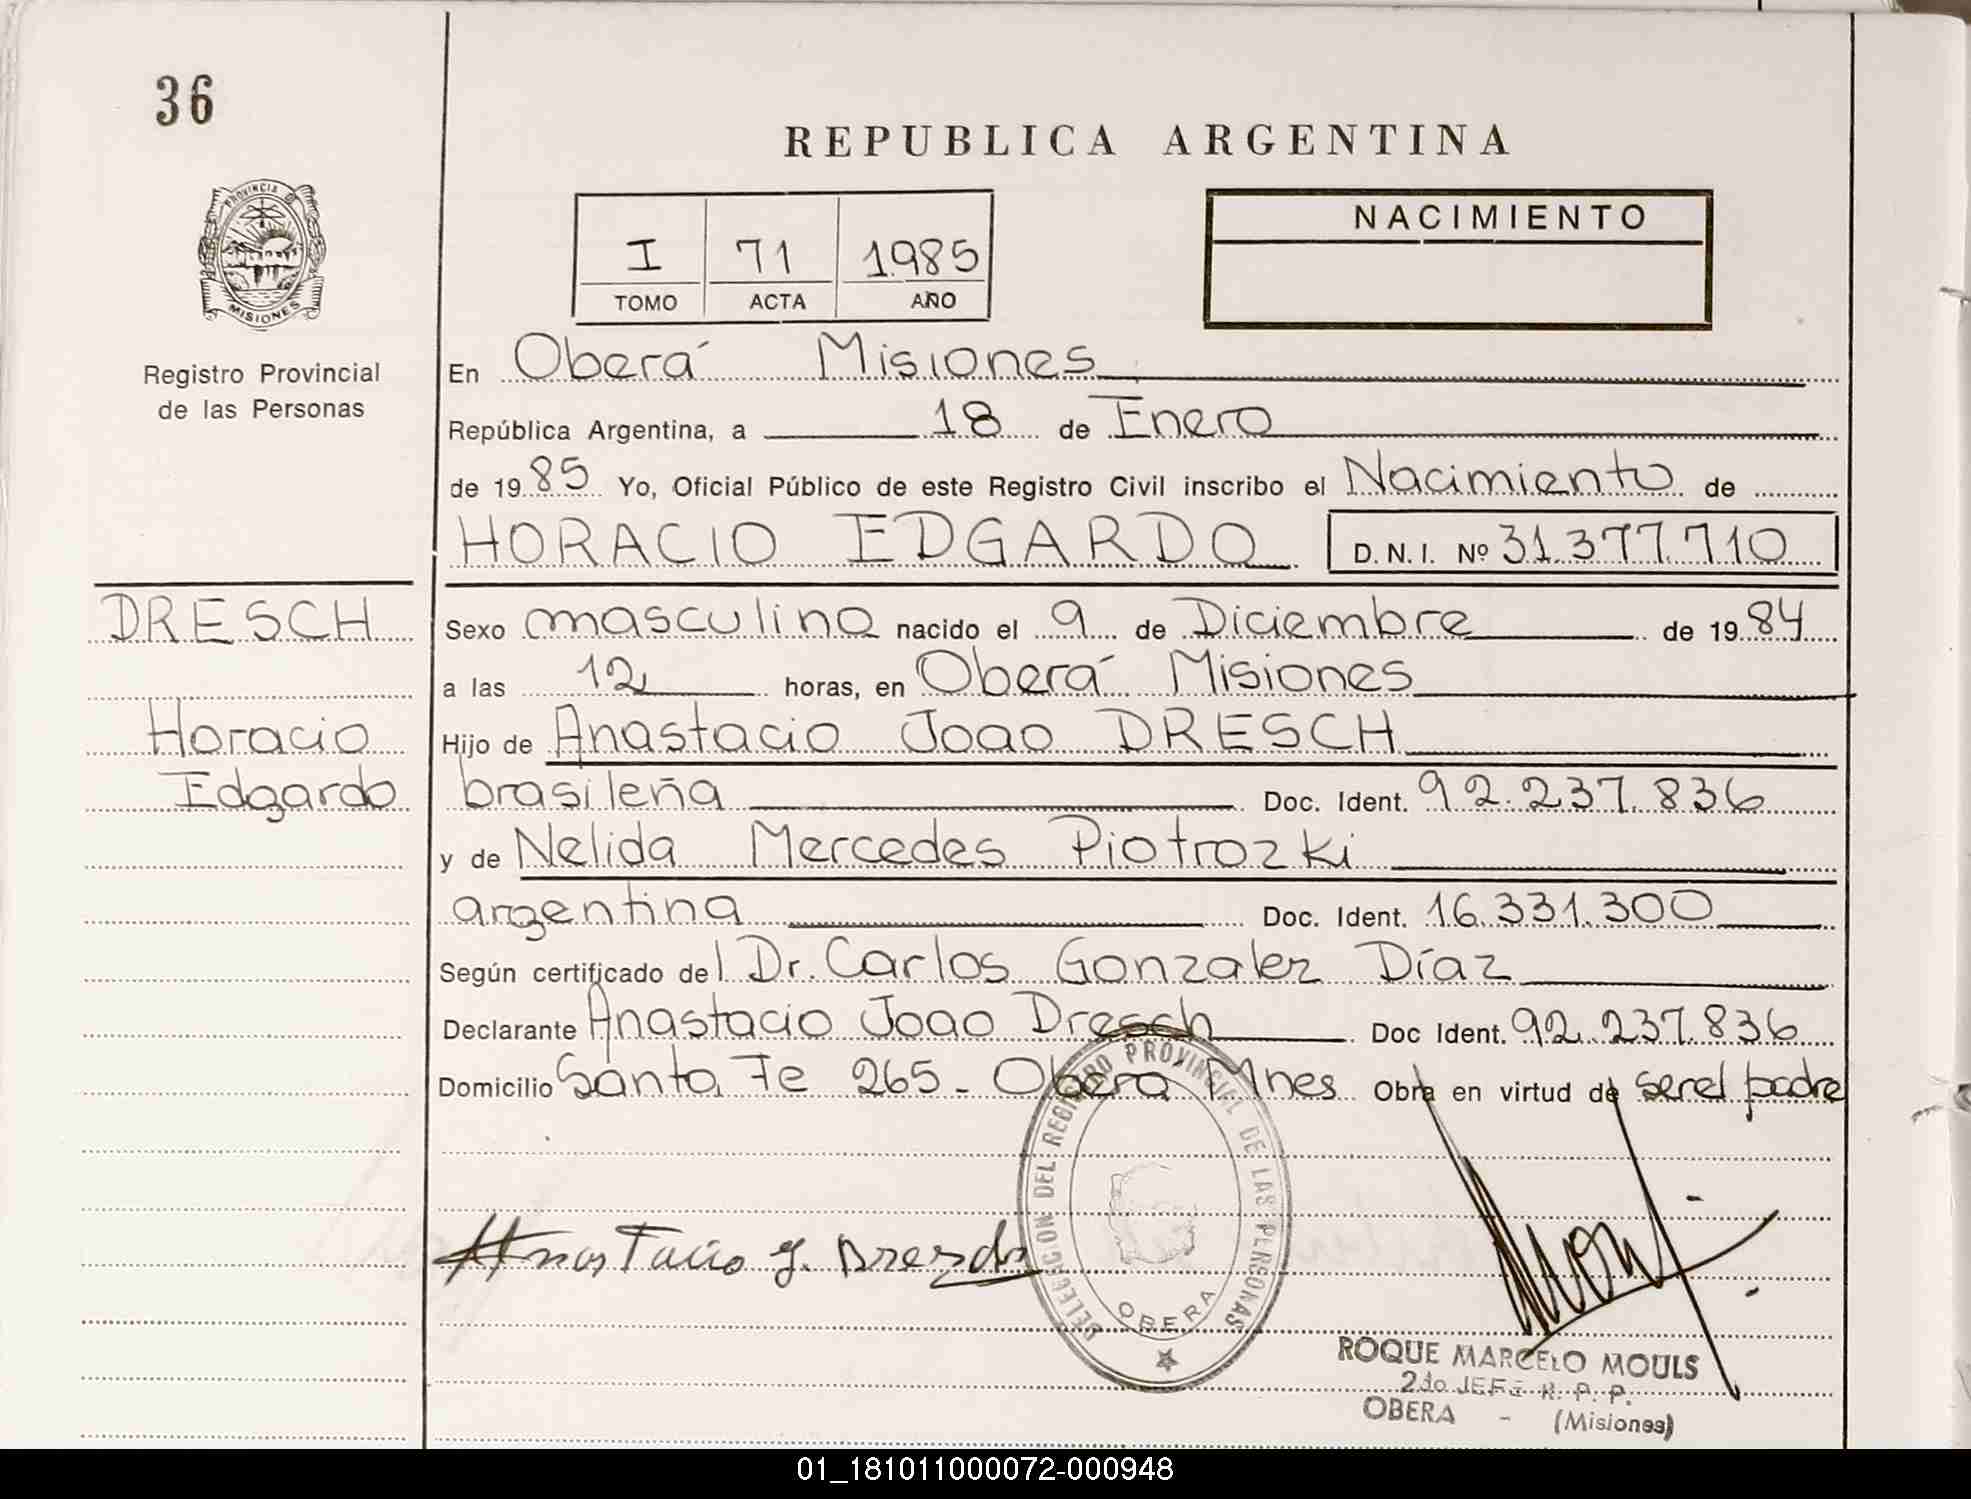 36
REPUBLICA ARGENTINA
PROVINCIA
MISIONES
Registro Provincial
de las Personas
I 71 1985
TOMO ACTA AÑO
NACIMIENTO
En Oberá Misiones
República Argentina, a 18 de Enero
de 1985 Yo, Oficial Público de este Registro Civil inscribo el Nacimiento de
HORACIO EDGARDO D. N. I. Nº 31.377.710
DRESCH
Horacio
Edgardo
Sexo masculino nacido el 9 de Diciembre de 1984
a las 12 horas, en Oberá Misiones
Hijo de Anastacio Joao DRESCH
brasileña Doc. Ident. 92.237.836
y de Nelida Mercedes Piotrozki
argentina Doc. Ident. 16.331.300
Según certificado del Dr. Carlos Gonzalez Díaz
Declarante Anastacio Joao Dresch Doc Ident. 92.237.836
Domicilio Santa Fe 265 - Obera Mnes Obra en virtud de ser el padre
DELEGACION DEL REGISTRO PROVINCIAL DE LAS PERSONAS
OBERA
Anastacio J. Dresch
ROQUE MARCELO MOULS
2do JEFE R. P. P.
OBERA - (Misiones)
01_181011000072-000948